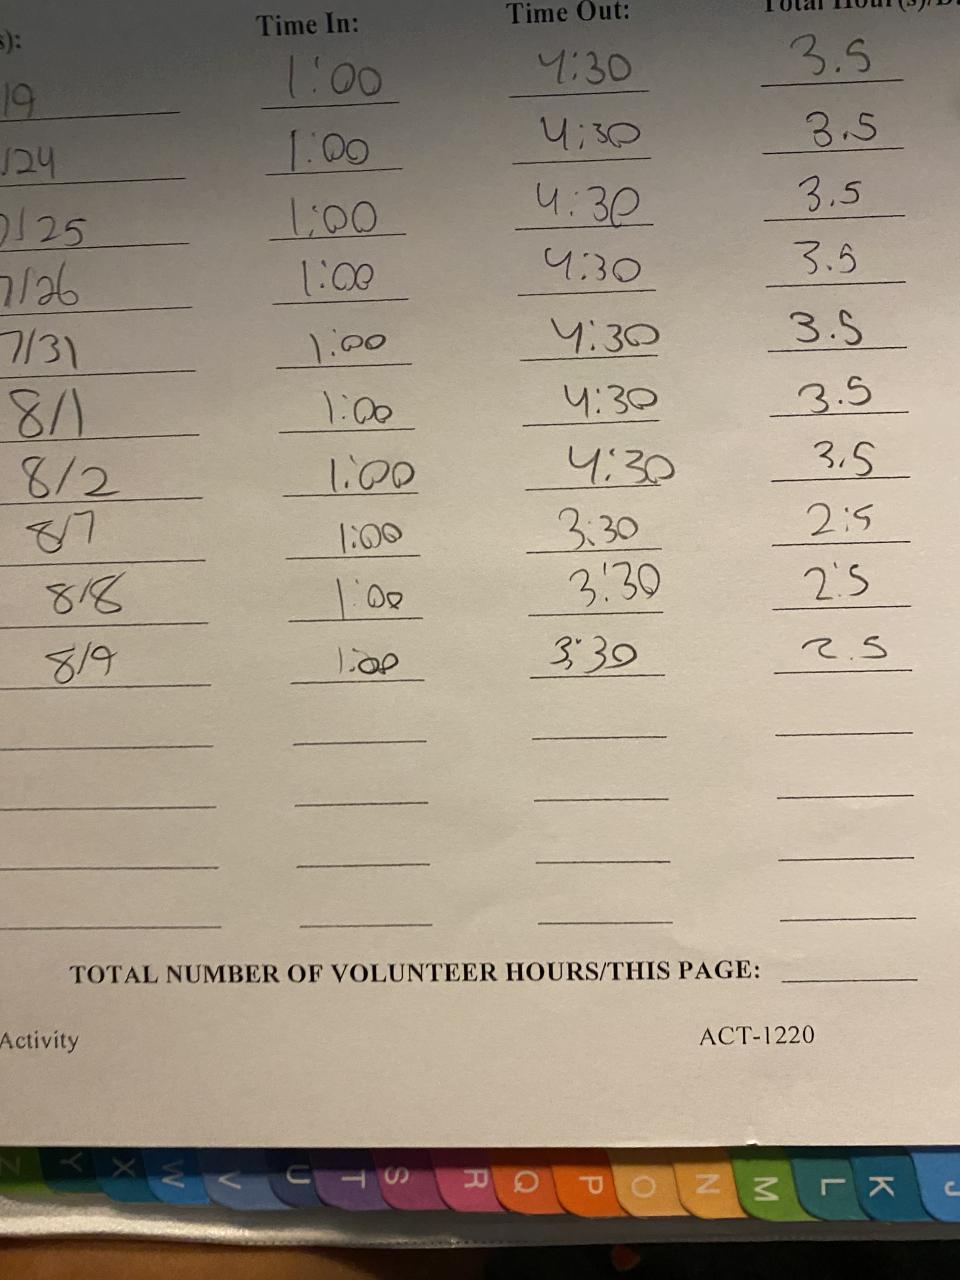 s): Time In: Time Out: Total Hour(s)/D
/19 1:00 4:30 3.5
/24 1:00 4:30 3.5
7/25 1:00 4:30 3.5
7/26 1:00 4:30 3.5
7/31 1:00 4:30 3.5
8/1 1:00 4:30 3.5
8/2 1:00 4:30 3.5
8/7 1:00 3:30 2:5
8/8 1:00 3:30 2:5
8/9 1:00 3:30 2.5
TOTAL NUMBER OF VOLUNTEER HOURS/THIS PAGE:
Activity ACT-1220
Z Y X W V U T S R Q P O N M L K J